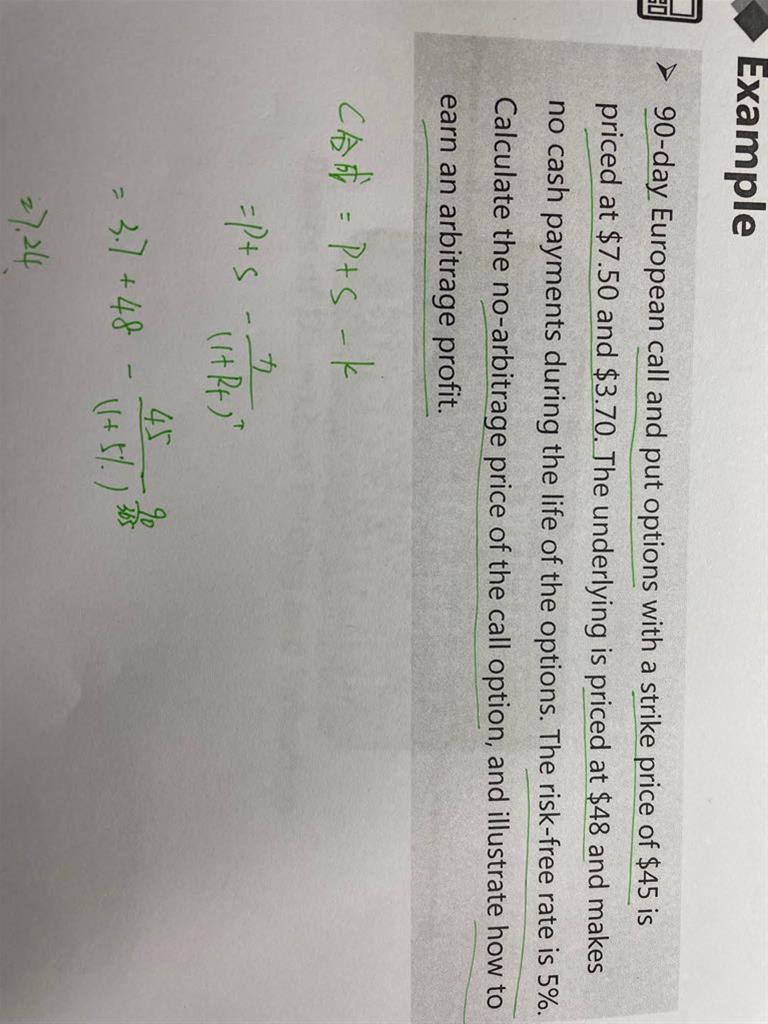 Example
➢ 90-day European call and put options with a strike price of $45 is
priced at $7.50 and $3.70. The underlying is priced at $48 and makes
no cash payments during the life of the options. The risk-free rate is 5%.
Calculate the no-arbitrage price of the call option, and illustrate how to
earn an arbitrage profit.
C合成 = P+S - k
= P+S - / (1+Rf)^T
= 3.7 + 48 - 45 / (1+5%)^90/365
=7.24